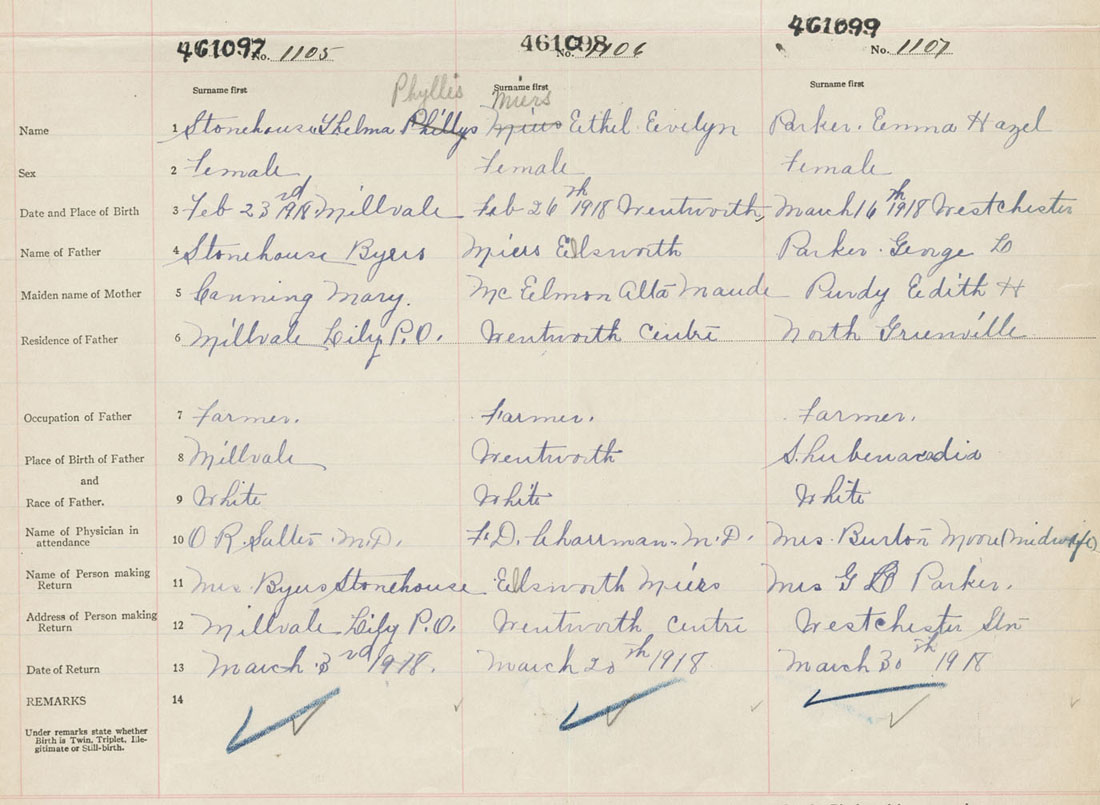 461097 461098 461099
No. 1105 No. 1106 No. 1107
Surname first Surname first Surname first
Phyllis Miers
Name 1 Stonehouse Thelma Phillys Miers Ethel Evelyn Parker. Emma Hazel
Sex 2 Female Female Female
Date and Place of Birth 3 Feb 23rd 1918 Millvale Feb 26th 1918 Wentworth, March 16th 1918 Westchester
Name of Father 4 Stonehouse Byers Miers Ellsworth Parker. George
Maiden name of Mother 5 Canning Mary. McElmon Alta Maude Purdy Edith H
Residence of Father 6 Millvale Lily P.O. Wentworth Centre North Greenville
Occupation of Father 7 Farmer. Farmer. Farmer.
Place of Birth of Father 8 Millvale Wentworth Shubenacadia
and
Race of Father. 9 White White White
Name of Physician in
attendance 10 O R Salter. M.D. F.D. Charman. M.D. Mrs. Burton Moore (Midwife)
Name of Person making
Return 11 Mrs. Byers Stonehouse Ellsworth Miers Mrs G Parker.
Address of Person making
Return 12 Millvale Lily P.O. Wentworth Centre Westchester Stn
Date of Return 13 March 3rd 1918. March 20th 1918 March 30th 1918
REMARKS 14
Under remarks state whether
Birth is Twin, Triplet, Ille-
gitimate or Still-birth.